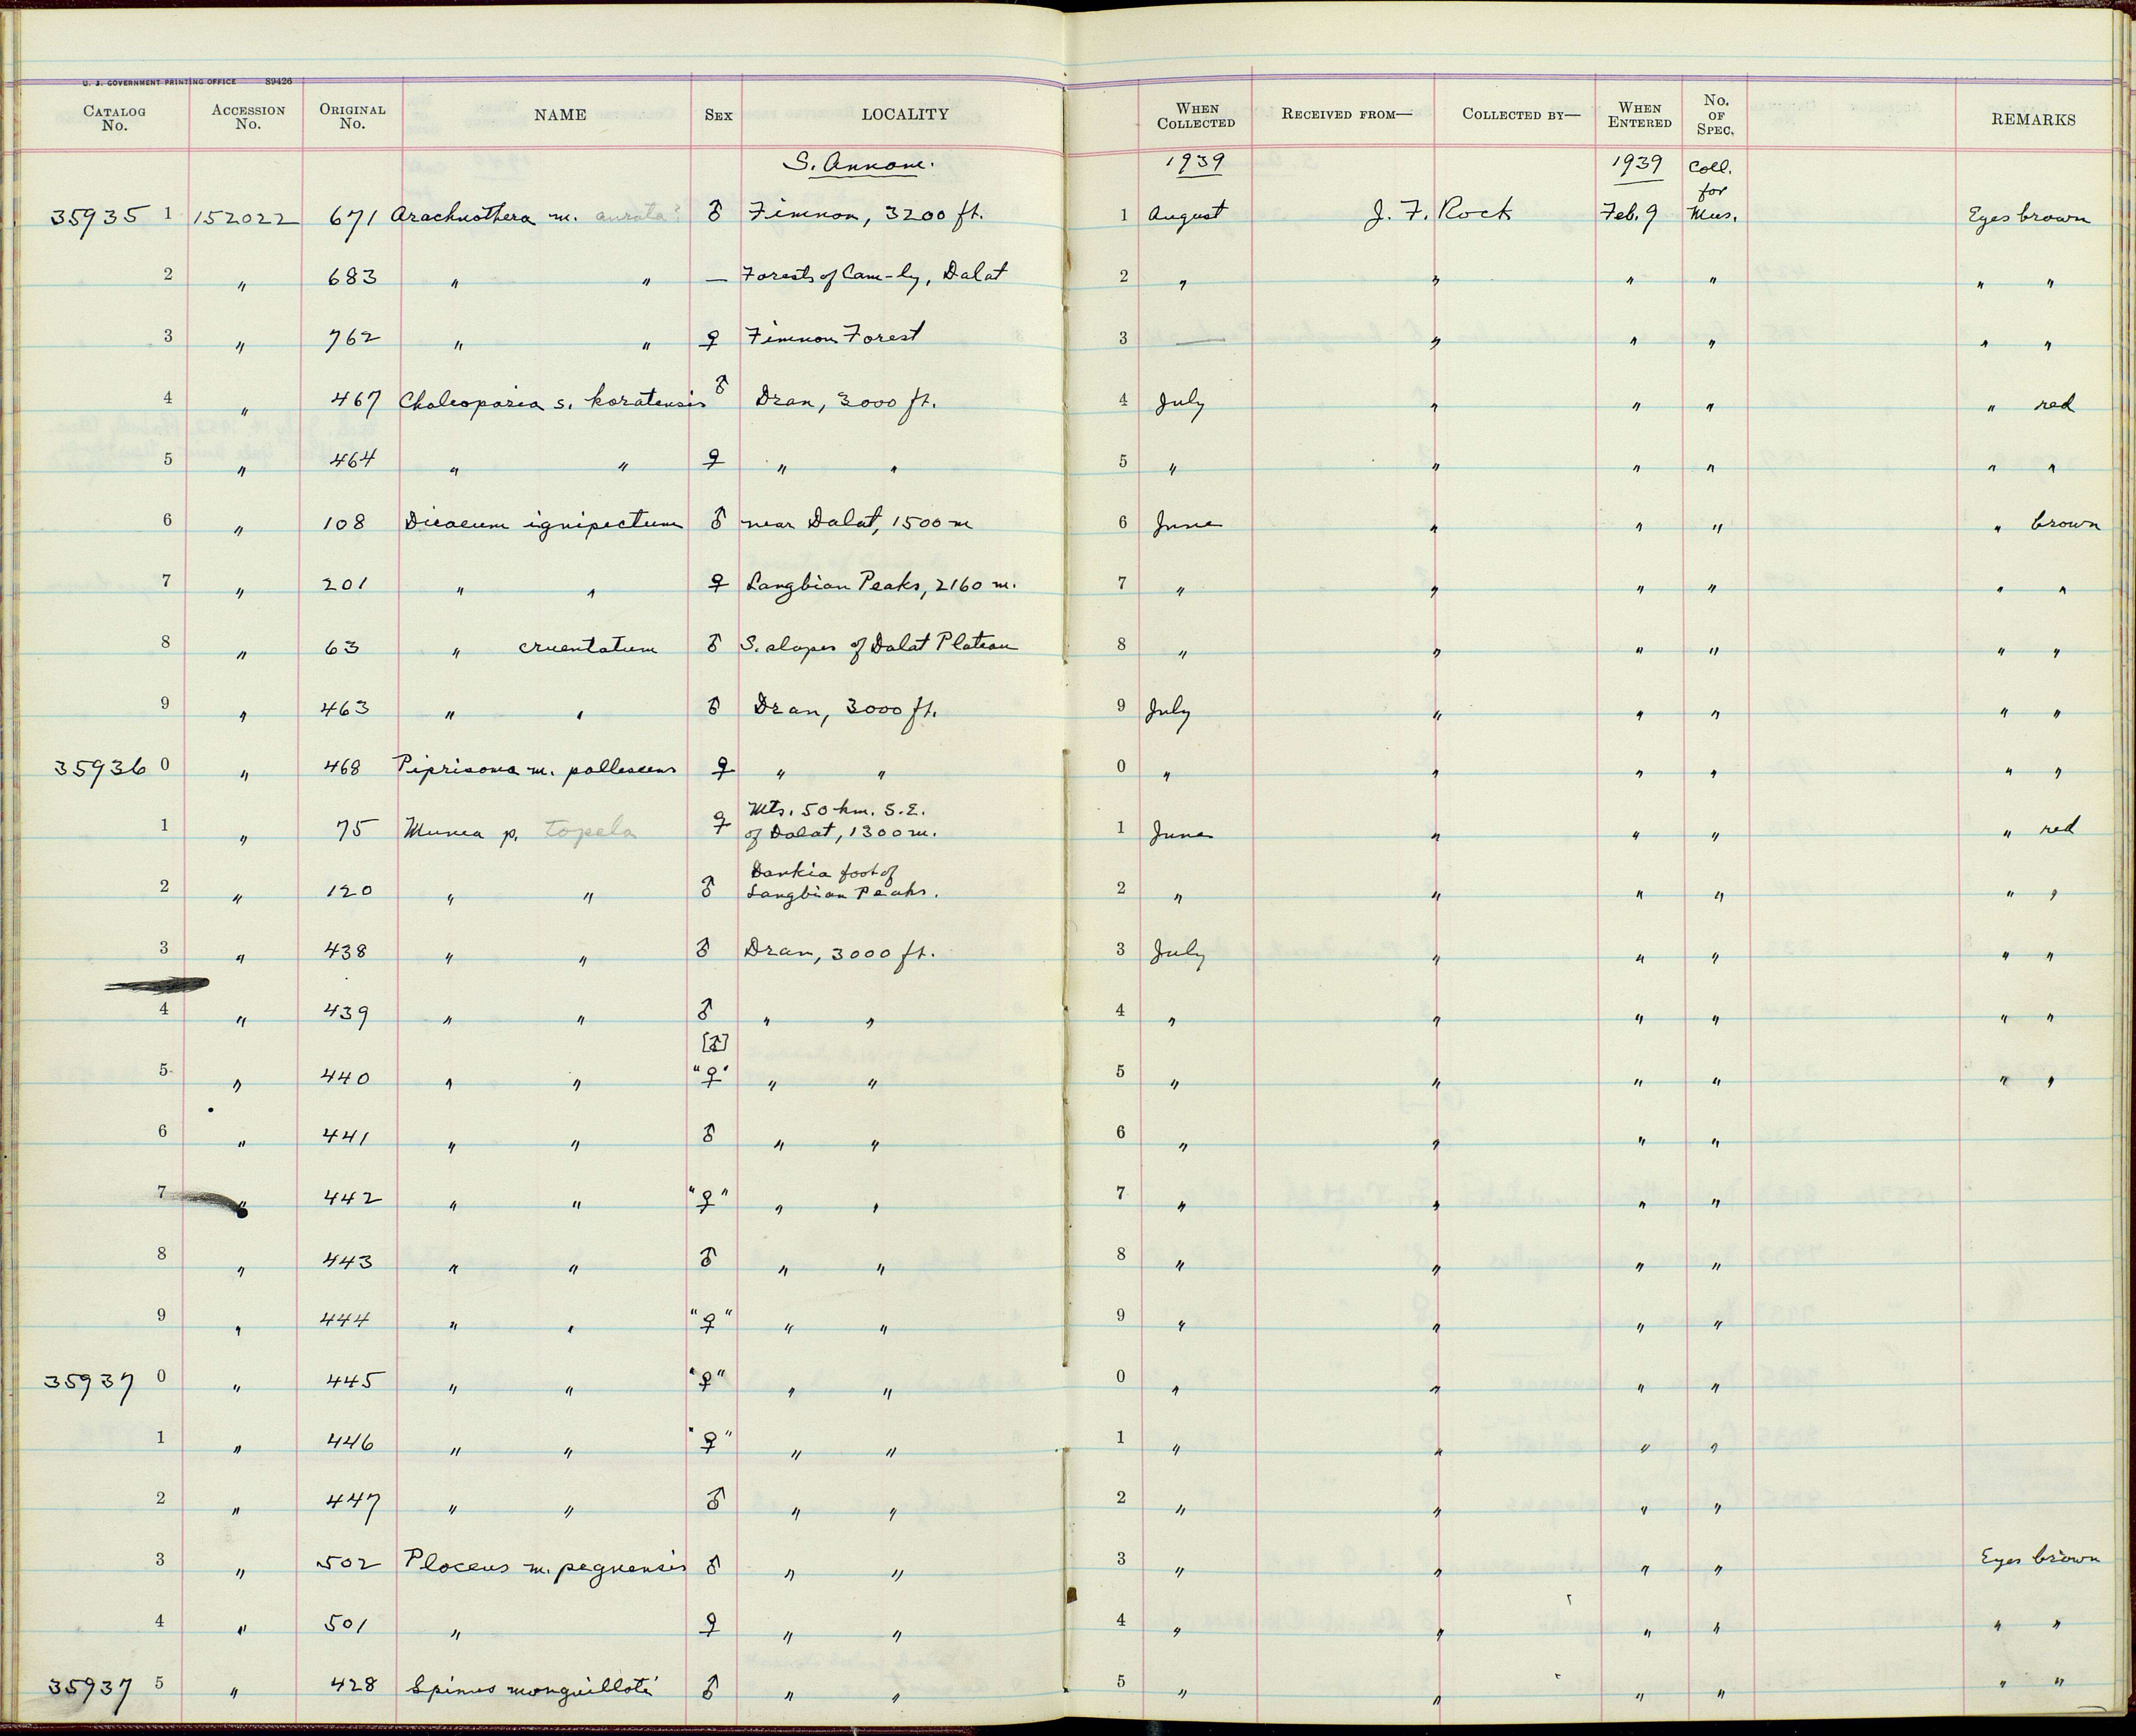 U. S. GOVERNMENT PRINTING OFFICE 89426
CATALOG No. ACCESSION No. ORIGINAL No. NAME SEX LOCALITY WHEN COLLECTED RECEIVED FROM— COLLECTED BY— WHEN ENTERED No. OF SPEC. REMARKS
S. Annam. 1939 1939 Coll. for
35935 1 152022 671 Arachnothera m. aurata? ♂ Fimnon, 3200 ft. 1 August J. F. Rock Feb. 9 Mus. Eyes brown
2 " 683 " " — Forests of Cam-ly, Dalat 2 " " " " " "
3 " 762 " " ♀ Fimnon Forest 3 — " " " " "
4 " 467 Chalcoparia s. koratensis ♂ Dran, 3000 ft. 4 July " " " " red
5 " 464 " " ♀ " " 5 " " " " " "
6 " 108 Dicaeum ignipectum ♂ near Dalat, 1500 m 6 June " " " " brown
7 " 201 " " ♀ Langbian Peaks, 2160 m. 7 " " " " " "
8 " 63 " cruentatum ♂ S. slopes of Dalat Plateau 8 " " " " " "
9 " 463 " " ♂ Dran, 3000 ft. 9 July " " " " "
35936 0 " 468 Piprisoma m. pallescens ♀ " " 0 " " " " " "
1 " 75 Munia p. topela ♀ Mts. 50 km. S.E. of Dalat, 1300 m. 1 June " " " " red
2 " 120 " " ♂ Dankia foot of Langbian Peaks. 2 " " " " " "
3 " 438 " " ♂ Dran, 3000 ft. 3 July " " " " "
4 " 439 " " ♂ " " 4 " " " " " "
5 " 440 " " [♂] "♀" " " 5 " " " " " "
6 " 441 " " ♂ " " 6 " " " "
7 " 442 " " "♀" " " 7 " " " "
8 " 443 " " ♂ " " 8 " " " "
9 " 444 " " "♀" " " 9 " " " "
35937 0 " 445 " " "♀" " " 0 " " " "
1 " 446 " " "♀" " " 1 " " " "
2 " 447 " " ♂ " " 2 " " " "
3 " 502 Ploceus m. peguensis ♂ " " 3 " " " " Eyes brown
4 " 501 " ♀ " " 4 " " " " " "
35937 5 " 428 Spinus monguilloti ♂ " " 5 " " " " " "